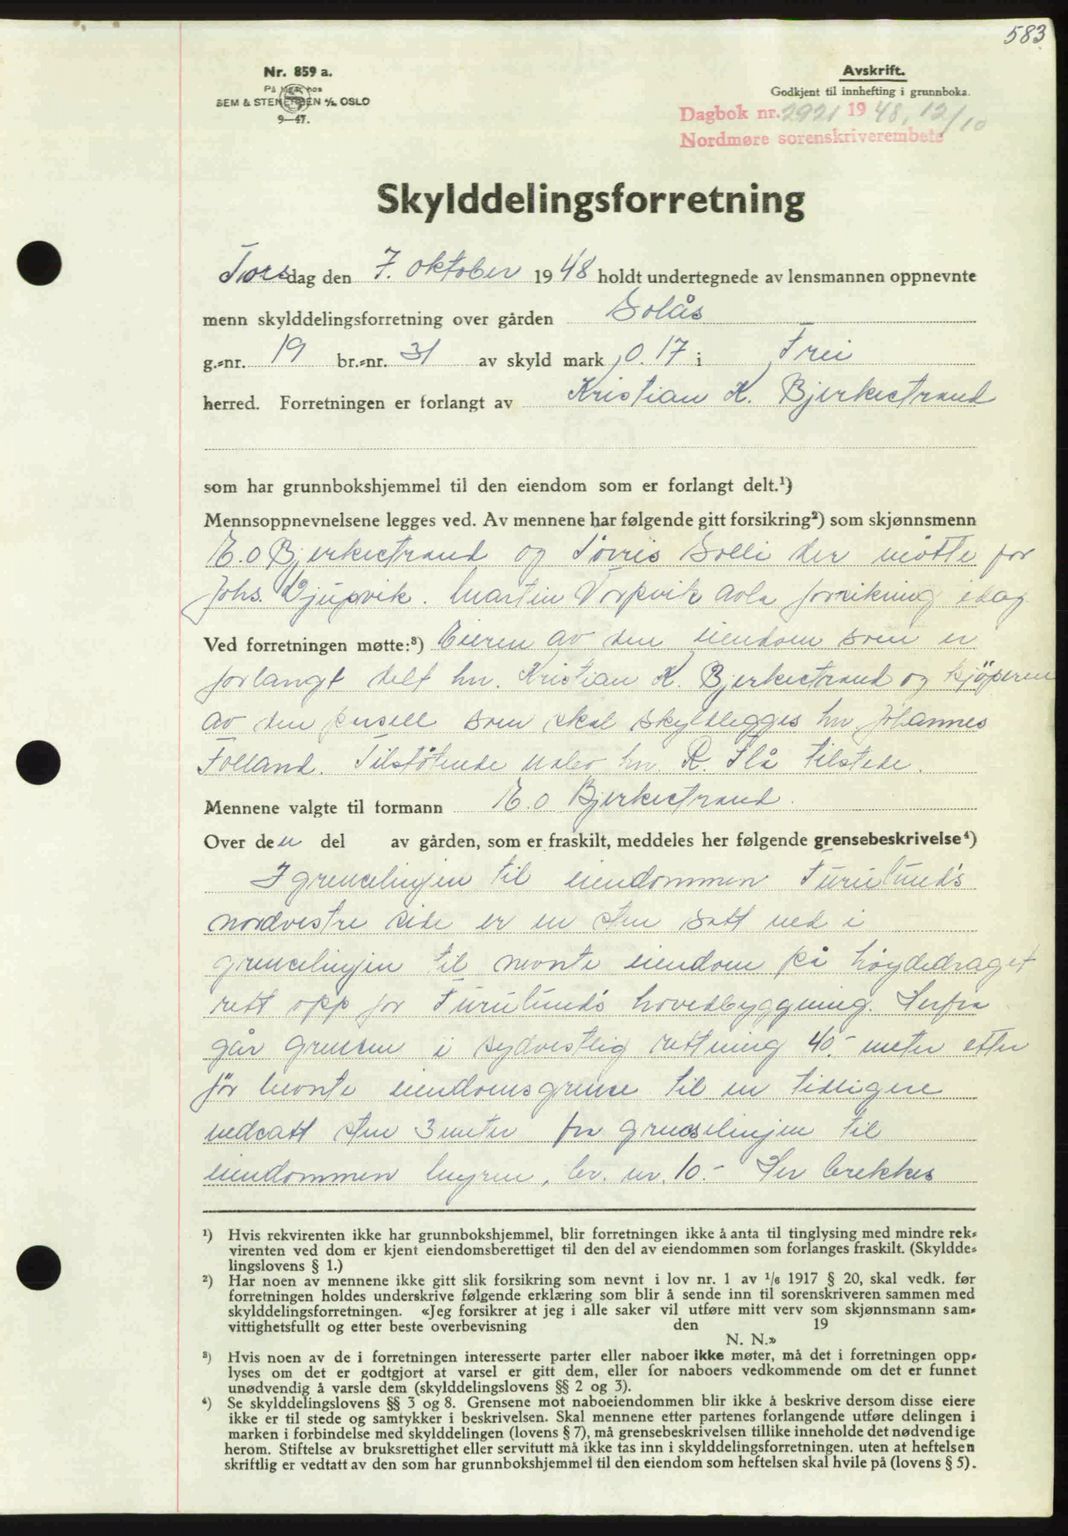 583
Nr. 859 a.
På lager hos
SEM & STENERSEN A/S OSLO
9—47.
Avskrift.
Godkjent til innhefting i grunnboka.
Dagbok nr. 2921 1948, 12/10
Nordmøre sorenskriverembete
Skylddelingsforretning
Torsdag den 7. oktober 1948 holdt undertegnede av lensmannen oppnevnte
menn skylddelingsforretning over gården Solås
g.-nr. 19 br.-nr. 31 av skyld mark 0.17 i Frei
herred. Forretningen er forlangt av Kristian K. Bjerkestrand
som har grunnbokshjemmel til den eiendom som er forlangt delt.¹)
Mennsoppnevnelsene legges ved. Av mennene har følgende gitt forsikring²) som skjønnsmenn
E. O Bjerkestrand og Sivris Solli der møtte for
Johs. Djupvik. Martin Vorpvik avla forsikning idag
Ved forretningen møtte:³) Eieren av den eiendom som er
forlangt delt hr. Kristian K. Bjerkestrand og kjöperen
av den parsell som skal skyldlegges hr Johannes
Folland. Tilstötende nabo hr. R. Flå tilstede.
Mennene valgte til formann E. O Bjerkestrand.
Over den del av gården, som er fraskilt, meddeles her følgende grensebeskrivelse⁴)
I grenselinjen til eiendommen Furulund's
nordvestre side er en sten satt ned i
grenselinjen til nevnte eiendom på høydedraget
rett opp for Furulund's hovedbyggning. Herfra
går grensen i sydvestlig rettning 40.- meter etter
för nevnte eiendomsgrense til en tidligere
nedsatt sten 3 meter fra grenselinjen til
eiendommen Myren, br. nr. 10.- Her brekkes
¹) Hvis rekvirenten ikke har grunnbokshjemmel, blir forretningen ikke å anta til tinglysing med mindre rek-
virenten ved dom er kjent eiendomsberettiget til den del av eiendommen som forlanges fraskilt. (Skyldde-
lingslovens § 1.)
²) Har noen av mennene ikke gitt slik forsikring som nevnt i lov nr. 1 av 1/6 1917 § 20, skal vedk. før
forretningen holdes underskrive følgende erklæring som blir å sende inn til sorenskriveren sammen med
skylddelingsforretningen. «Jeg forsikrer at jeg i alle saker vil utføre mitt verv som skjønnsmann sam-
vittighetsfullt og etter beste overbevisning den 19
N. N.»
³) Hvis noen av de i forretningen interesserte parter eller naboer ikke møter, må det i forretningen opp-
lyses om det er godtgjort at varsel er gitt dem, eller for naboers vedkommende om det er funnet
unødvendig å varsle dem (skylddelingslovens §§ 2 og 3).
⁴) Se skylddelingslovens §§ 3 og 8. Grensene mot naboeiendommen blir ikke å beskrive dersom disse eiere
ikke er til stede og samtykker i beskrivelsen. Skal mennene etter partenes forlangende utføre delingen i
marken i forbindelse med skylddelingen (lovens § 7), må grensebeskrivelsen tillike inneholde det nødvendige
herom. Stiftelse av bruksrettighet eller servitutt må ikke tas inn i skylddelingsforretningen. uten at heftelsen
skriftlig er vedtatt av den som har grunnbokshjemmel til den eiendom som heftelsen skal hvile på (lovens § 5).